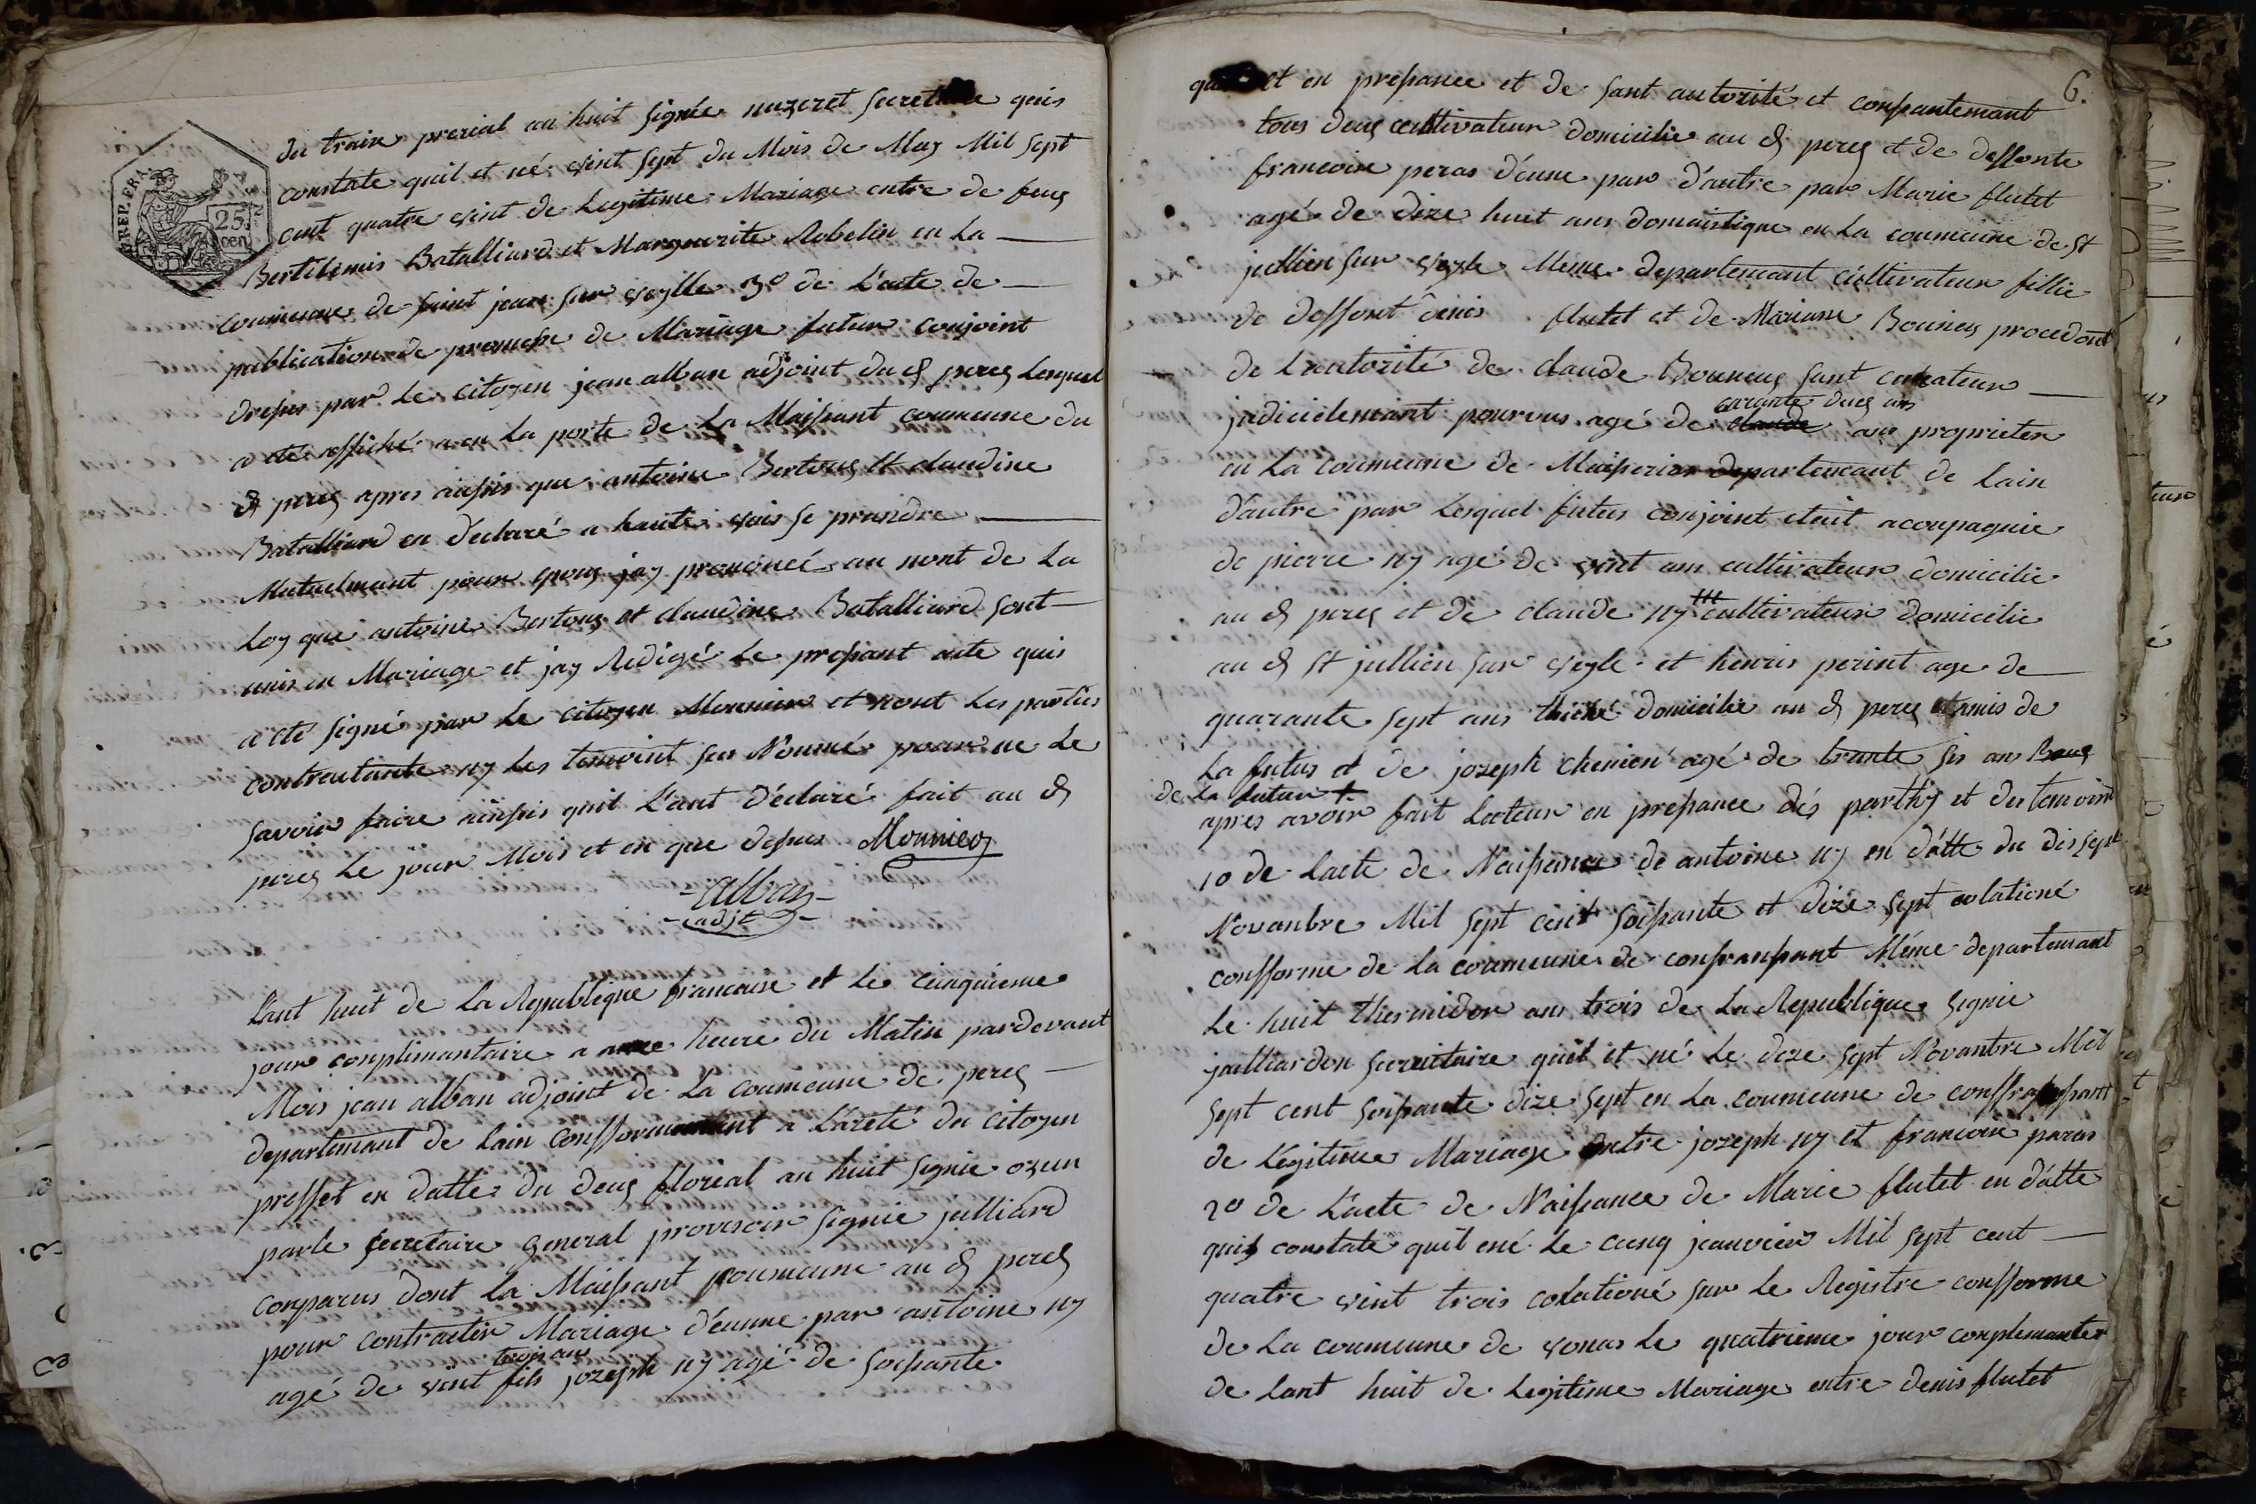 RÉP. FRA.
25 cen
du traize prerial an huit signée nuzeret secretaire quis
constate quil et né vint sept du Mois de May Mil sept
cent quatre vint de Legitime Mariage entre de feug
Bertelemis Batalliard et Marguerite Robelin en La
coumeune de saint jean sur veylle 3º de L'acte de
publication de promesse de Mariage futur conjoint
dresser par Le citoyen jean alban adjoint du d perey Lesquel
a été affiché a en La porte de La Maissant coumeune du
d perey apres ainsis que antoine Bertoug et claudine
Batalliard en declaré a haute vois se prindre
Mutuelmant pour epoug jay prononcé au nont de La
Loy que antoine Bertoug et claudine Batalliard sont
unis en Mariage et jay Redigé Le pressant acte quis
a été signé par Le citoyen Mounier et nont Les partiès
contractante ny Les temoint sus Noumé pour ne Le
savoir faire ainsis quil L'ant déclaré fait au d
perey Le jour Mois et en que dessus Mounier
Alban
adjt
L'ant huit de La Republique francaise et Le cinquieme
jour conplimantaire a heure du Matin pardevant
Mois jean alban adjoint de La coumeune de perey
departemant de Lain confformemant a L'areté du citoyen
preffet en datte du deug floreal an huit signie ozun
parle secretaire general provisoir signie juilliard
conparus dont La Maissant coumeune au d perey
pour contracter Mariage d'eunne par antoine ny
trois ans
agé de vint fils jozeph ny agé de soissante
6.
et en pressance et de sant autorité et conssantemant
tous deug cultivateur domicilie au d perey et de deffonte
francoise peras d'eune par d'autre par Marie flutet
agé de dize huit ans domaistique en La coumeune de St
jullien sur veyle Meme departemant cultivateur fillie
de deffont denis flutet et de Mariane Bouneug procedant
de L'autorité de claude Bouneug sant curateur
carante deug ans
judicielemant pourvus agé de claude ans proprieter
en La coumeune de Maisseria departemant de Lain
d'autre par Lesquel futur conjoint etait acoupagnie
de pierre ny agé de vint ans cultivateur domicilie
au d perey et de claude ny cultivateur domicilie
au d St jullien sur veyle et henris perint age de
quarante sept ans domicilie au d perey et amis de
La futur et de jozeph chenien agé de trante sis ans
de La futur
apres avoir fait Lecteur en pressance dés parthy et des temoint
1º de Lacte de Naissance de antoine ny en datte du dis sept
Novanbre Mil sept cent soissante et dize sept colationé
confforme de La coumeune de confranssant Mème departemant
Le huit thermidor ans trois de La Republique signie
jalliardon secreitaire quil et né Le dize sept Novanbre Mil
sept cent soissante dize sept en La coumeune de conffranssant
de Légitime Mariage entre jozeph ny et francoise paras
2º de L'acte de Naissance de Marie flutet en d'atte
quis constate quil ené Le cinq jeanvier Mil sept cent
quatre vint trois colationé sur Le Registre confforme
de La coumeune de vonas Le quatrieme jour conplemanter
de Lant huit de Legitime Mariage entre denis flutet